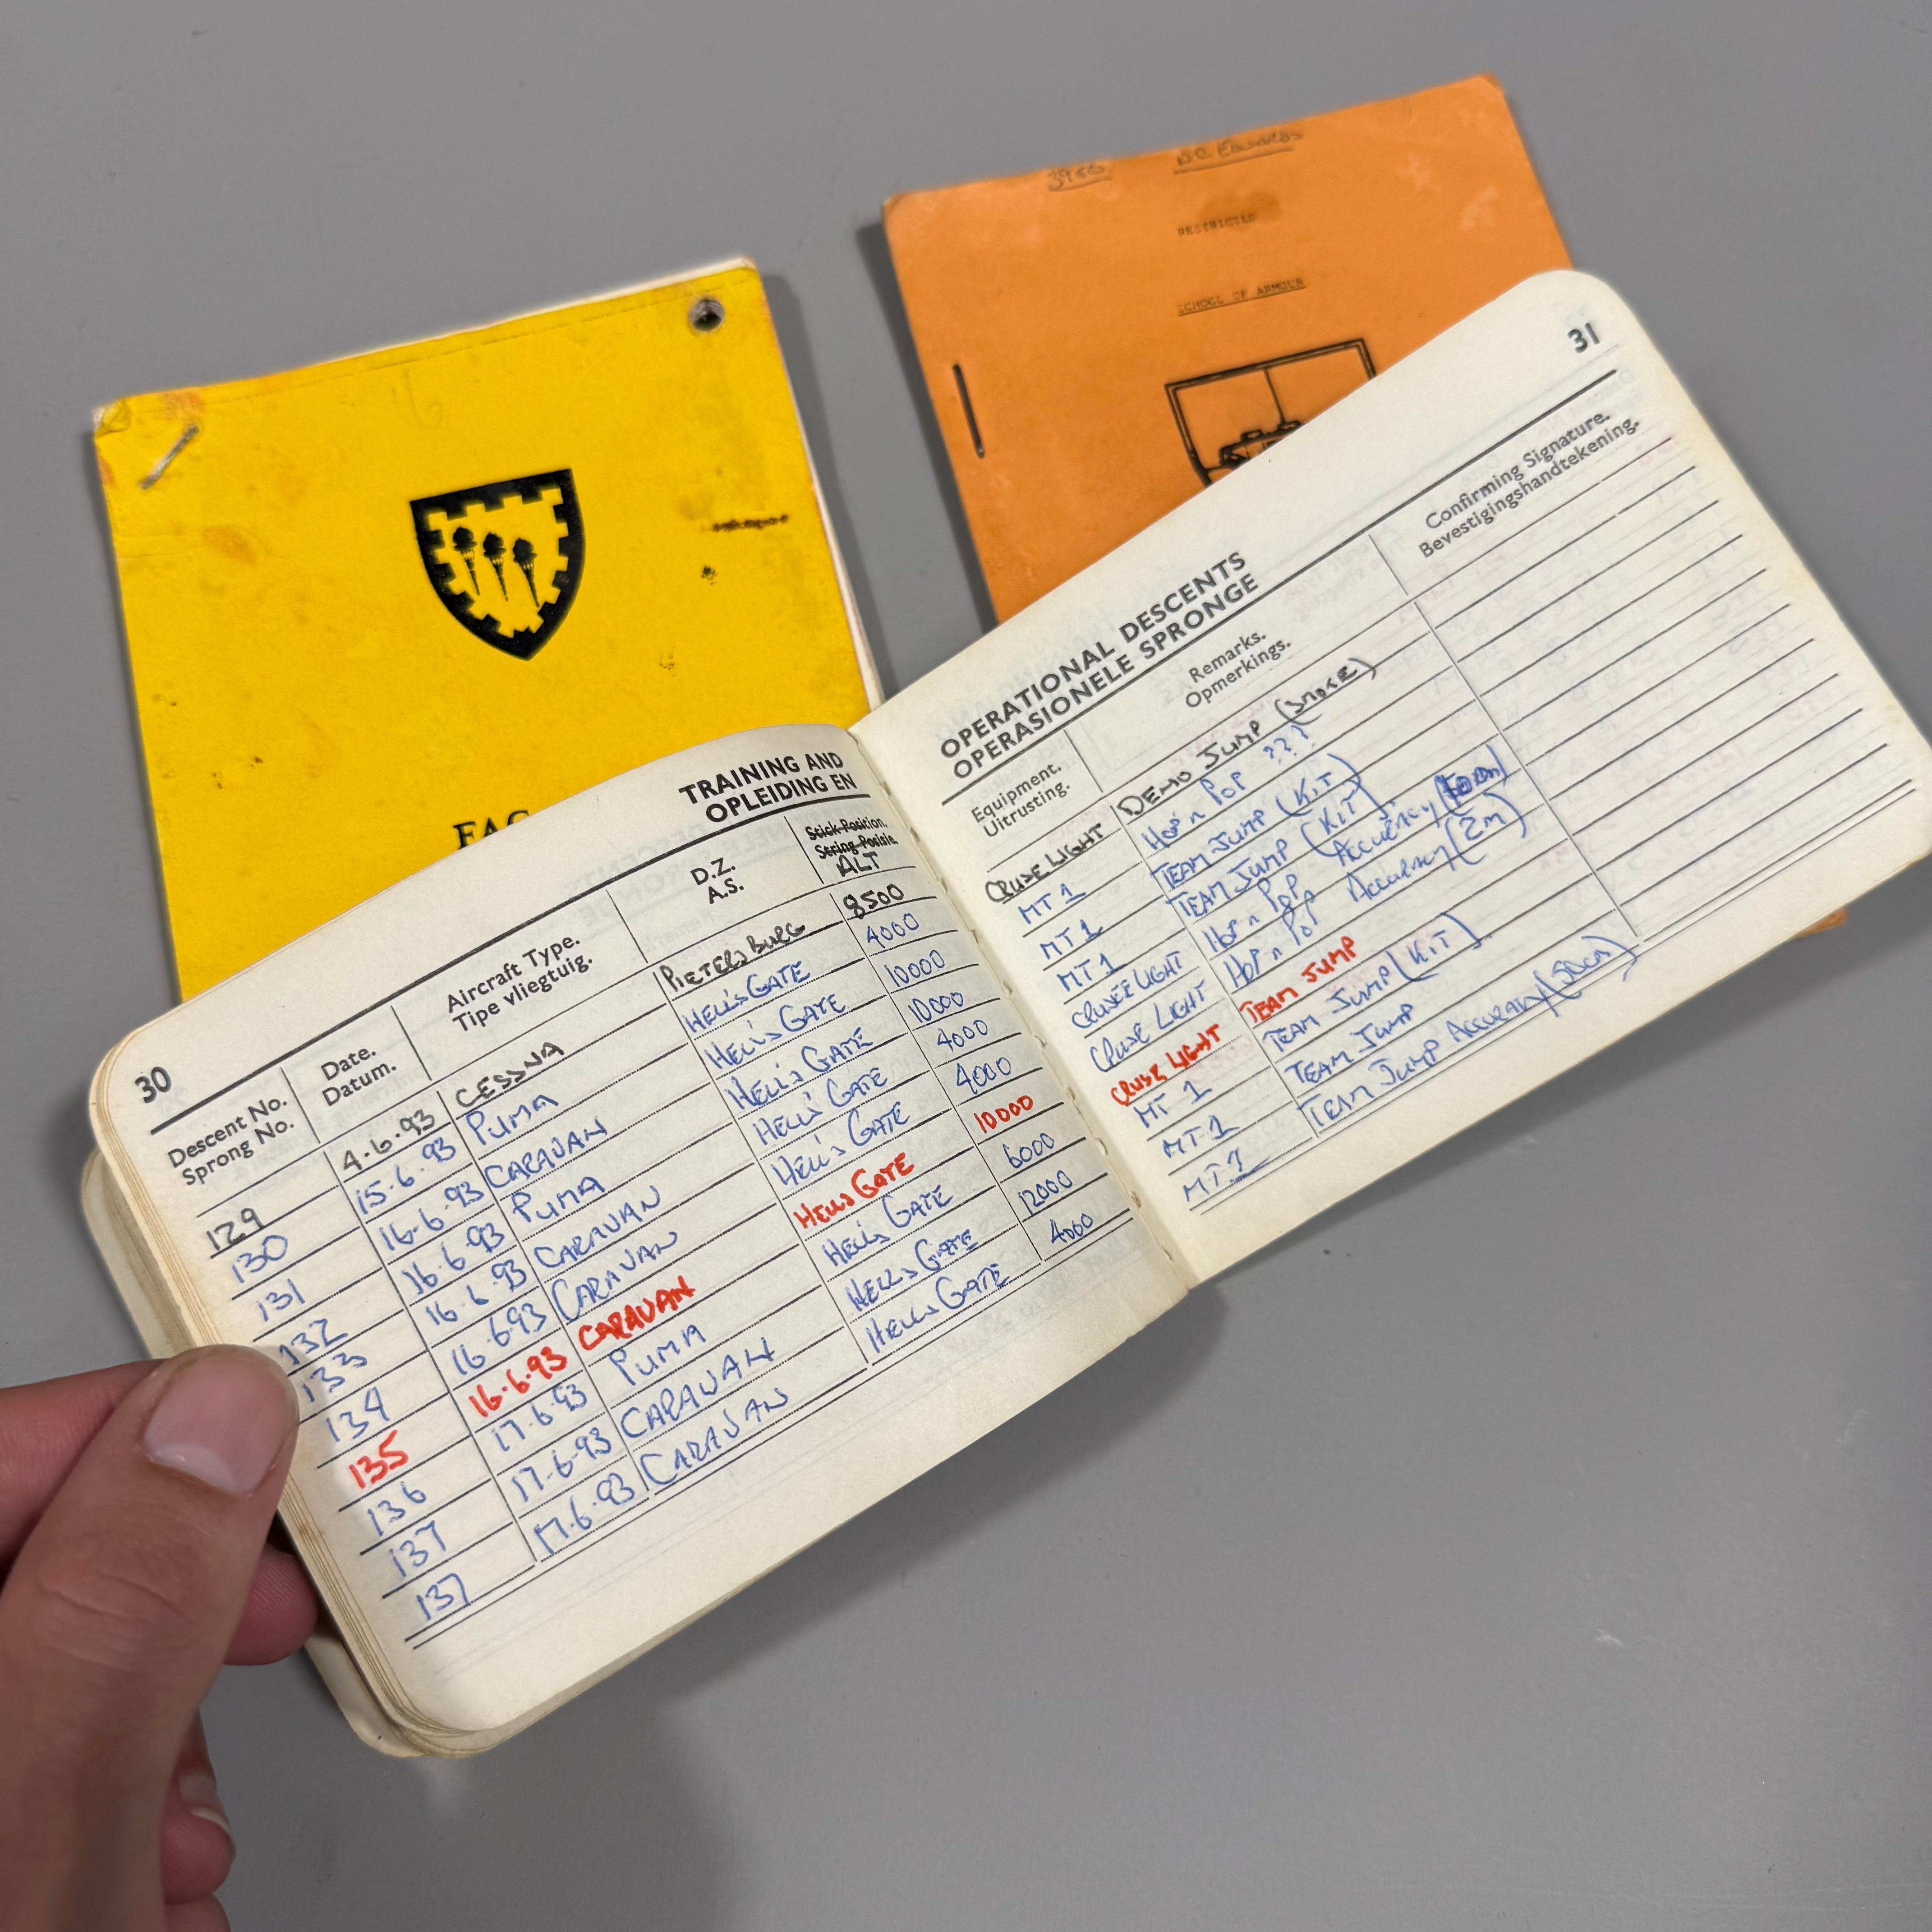 RESTRICTED
SCHOOL OF ARMOUR
30
TRAINING AND
OPLEIDING EN
Descent No.
Sprong No.
Date.
Datum.
Aircraft Type.
Tipe vliegtuig.
D.Z.
A.S.
Stick Position.
String Posisie.
ALT
129 4.6.93 CESSNA PIETERSBURG 8500
130 15.6.93 PUMA HELL'S GATE 4000
131 16.6.93 CARAVAN HELL'S GATE 10000
132 16.6.93 PUMA HELL'S GATE 10000
133 16.6.93 CARAVAN HELL'S GATE 4000
134 16.6.93 CARAVAN HELL'S GATE 4000
135 16.6.93 CARAVAN HELLS GATE 10000
136 17.6.93 PUMA HELLS GATE 6000
137 17.6.93 CARAVAN HELLS GATE 12000
137 17.6.93 CARAVAN HELLS GATE 4000
31
OPERATIONAL DESCENTS
OPERASIONELE SPRONGE
Equipment.
Uitrusting.
Remarks.
Opmerkings.
Confirming Signature.
Bevestigingshandtekening.
CRUSE LIGHT DEMO JUMP (SMOKE)
MT 1 HOP n POP ???
MT 1 TEAM JUMP (KIT)
MT 1 TEAM JUMP (KIT)
CRUSE LIGHT HOP n POP ACCURACY
CRUSE LIGHT HOP n POP ACCURACY (2m)
CRUSE LIGHT TEAM JUMP
MT 1 TEAM JUMP (KIT)
MT 1 TEAM JUMP
MT 1 TEAM JUMP ACCURACY